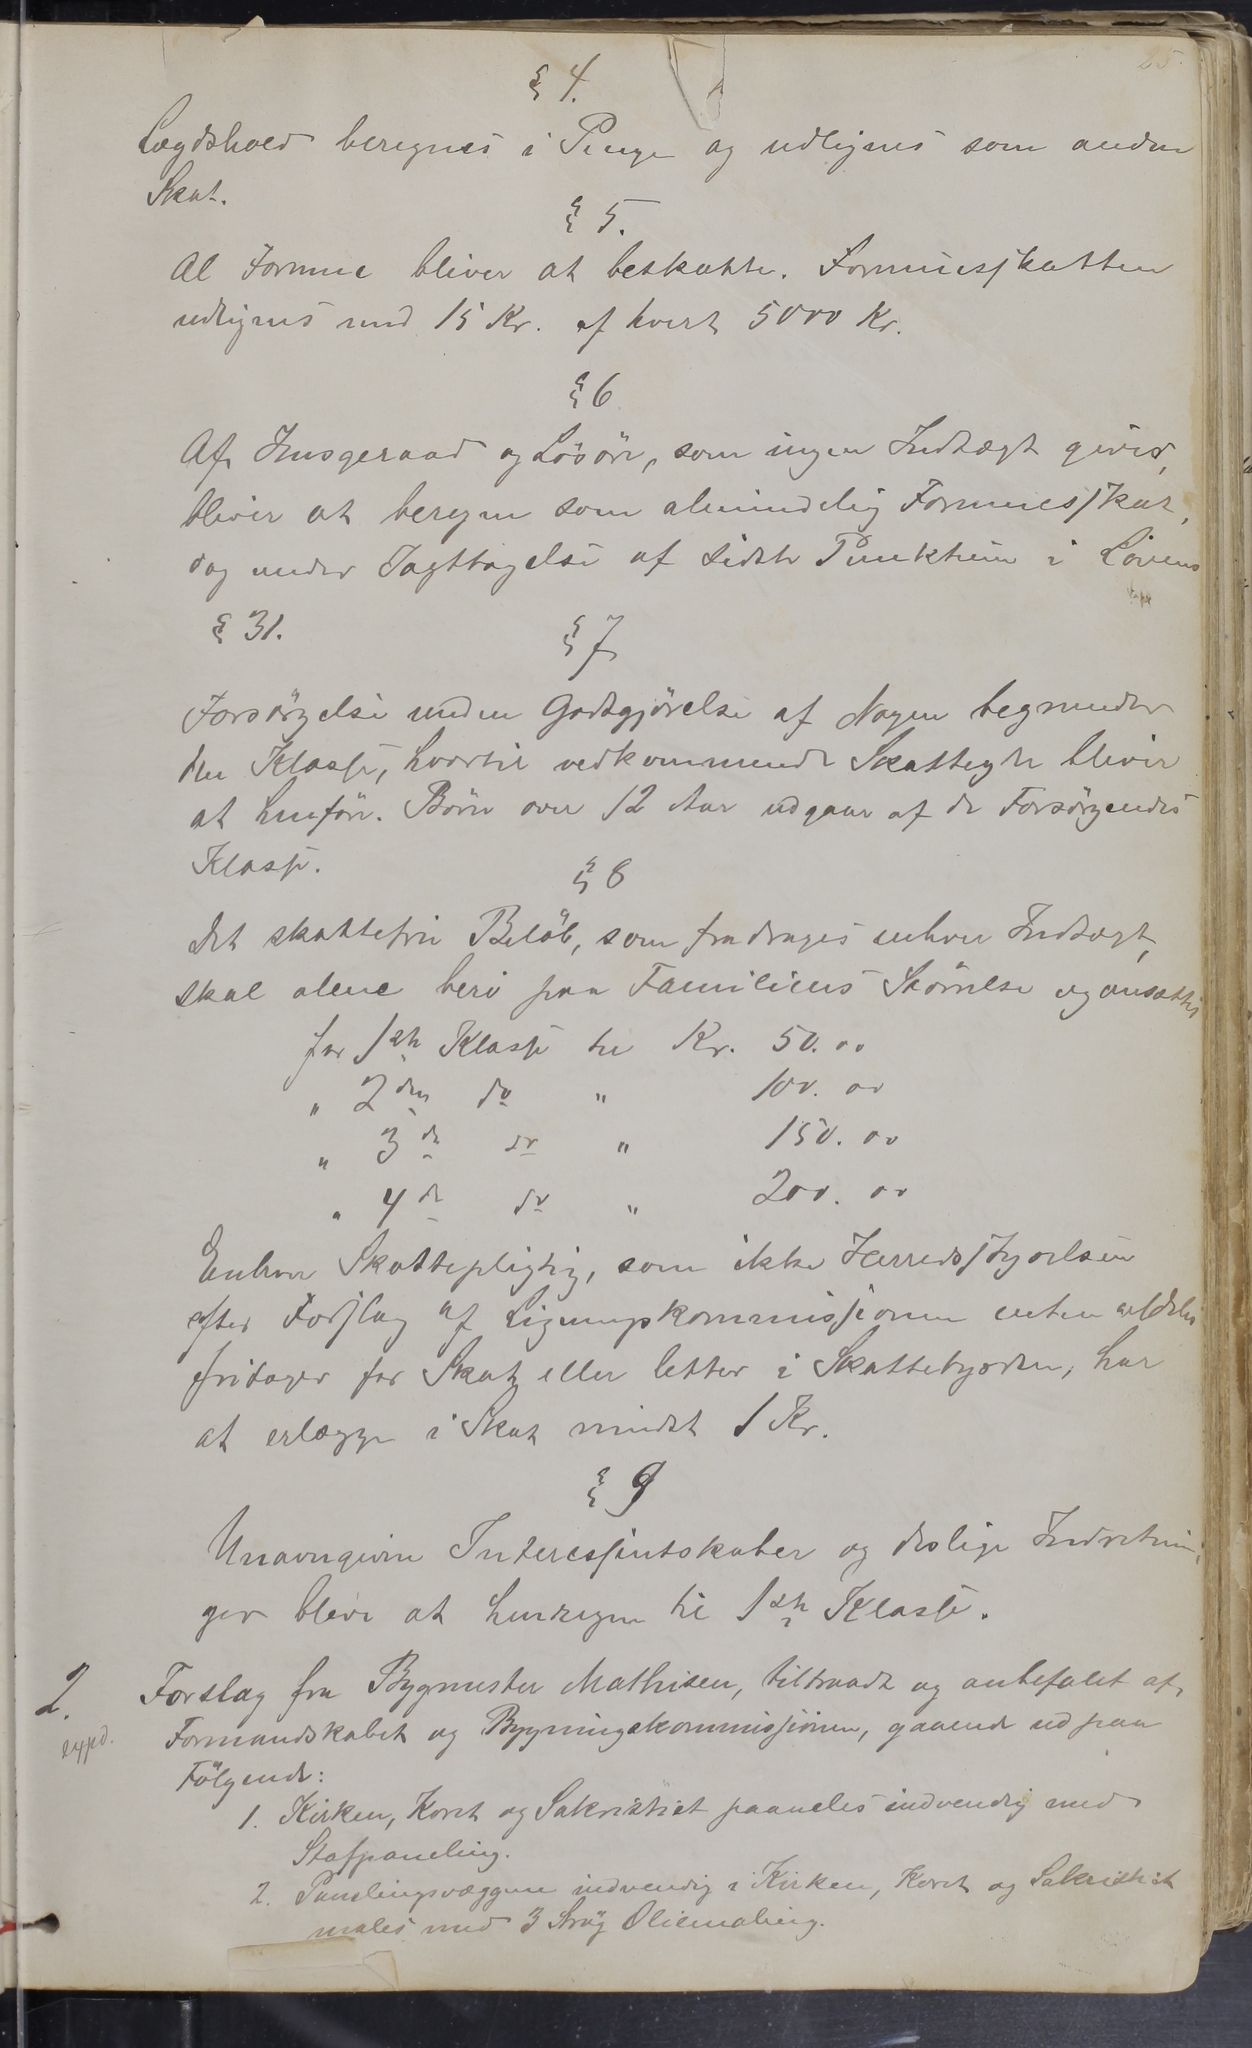 25.
§ 4.
Lægdshold beregnes i Penge og udlignes som anden
Skat.
§ 5.
Al Formue bliver at beskatte. Formuesskatten
udlignes med 15 Kr. af hvert 5000 Kr.
§ 6
Af Husgeraad og Lösöre, som ingen Indtægt giver,
bliver at beregne som almindelig Formuesskat,
dog under Iagttagelse af sidste Punktum i Lovens
§ 31.
§ 7
Forsörgelse uden Godtgjörelse af Nogen begrunder
den Klasse, hvortil vedkommende Skatteyder bliver
at henföre. Börn over 12 Aar udgaar af de Forsörgendes
Klasse.
§ 8
Det skattefrie Belöb, som fradrages enhver Indtægt,
skal alene bero paa Familiens Störrelse og ansættes
for 1ste Klasse til Kr. 50.00
" 2den do " 100.00
" 3de do " 150.00
" 4de do " 200.00
Enhver Skattepligtig, som ikke Herredsstyrelsen
efter Forslag af Ligningskommissionen enten aldeles
fritager for Skat eller letter i Skattebyrden, har
at erlægge i Skat mindst 1 Kr.
§ 9
Unavngivne Interessentskaber og deslige Indretnin-
ger blive at henregne til 1ste Klasse.
2. Forslag fra Bygmester Mathisen, tiltraadt og anbefalet af
exped. Formandskabet og Bygningskommissionen, gaaende ud paa
Fölgende:
1. Kirken, Koret og Sakristiet paaneles indvendig med
Stafpaneling.
2. Panelingsvæggene indvendig i Kirken, Koret og Sakristiet
males med 3 Strög Oliemaling.